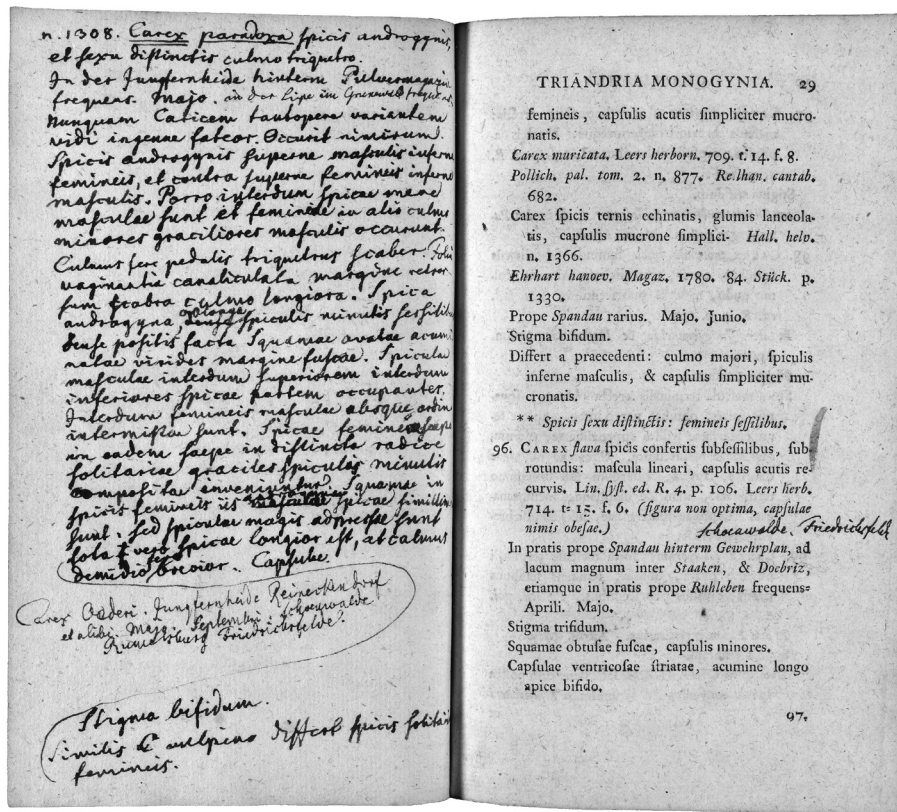 n. 1308. Carex paradoxa spicis androgynis,
et sexu distinctis culmo triquetro.
In der Jungfernheide hinterm Pulvermagazin
frequens. Majo. in der Lipe im Grunewald
Nunquam Caricem tantopere variantem
vidi ingenue fateor. Occurit nimirum
Spicis androgynis superne masculis inferne
femineis, et contra superne femineis inferne
masculis. Porro interdum spicae mere
masculae sunt et femineae in aliis culmis
minores graciliores masculis occurunt.
Culmus fere pedalis triquetrus scaber. Folia
vaginantia canaliculata margine retror-
sum scabra culmo longiora. Spica
androgyna, oblonga spiculis minutis sessilibus
dense positis facta Squamae ovatae acumi
natae virides margine fuscae. Spiculae
masculae interdum superiorem interdum
inferiores spicae partem occupantes.
Interdum femineis masculae absque ordine
intermistae sunt. Spicae femineae saepe
in eadem saepe in distincta radice
solitariae graciles spiculis minutis
compositae inveniuntur. Squamae in
spicis femineis iis spicae simillimae
sunt. Sed spiculae magis adpressae sunt
tota vero spicae longior est, at culmus
demidio brevior. Capsulae.
Carex Oederi. Jungfernheide Reineckendorf
et alibi. Majo. Septembri. Schoenwalde
Friedrichsfelde.
Stigma bifidum.
Similis C vulpina differt spicis solitariis
femineis.
TRIANDRIA MONOGYNIA. 29
femineis, capsulis acutis simpliciter mucro-
natis.
Carex muricata. Leers herborn. 709. t. 14. f. 8.
Pollich. pal. tom. 2. n. 877. Relhan. cantab.
682.
Carex spicis ternis echinatis, glumis lanceola-
tis, capsulis mucrone simplici. Hall. helv.
n. 1366.
Ehrhart hanoev. Magaz. 1780. 84. Stück. p.
1330.
Prope Spandau rarius. Majo. Junio.
Stigma bifidum.
Differt a praecedenti: culmo majori, spiculis
inferne masculis, & capsulis simpliciter mu-
cronatis.
** Spicis sexu distinctis: femineis sessilibus.
96. CAREX flava spicis confertis subsessilibus, sub-
rotundis: mascula lineari, capsulis acutis re-
curvis. Lin. syst. ed. R. 4. p. 106. Leers herb.
714. t= 15. f. 6. (figura non optima, capsulae
nimis obesae.) Schoenwalde. Friedrichsfelde
In pratis prope Spandau hinterm Gewehrplan, ad
lacum magnum inter Staaken, & Doebriz,
etiamque in pratis prope Ruhleben frequens=
Aprili. Majo.
Stigma trifidum.
Squamae obtusae fuscae, capsulis minores.
Capsulae ventricosae striatae, acumine longo
apice bifido.
97.